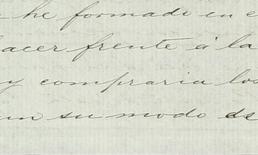 he formado en e
hacer frente á la
y compraria los
un su modo de